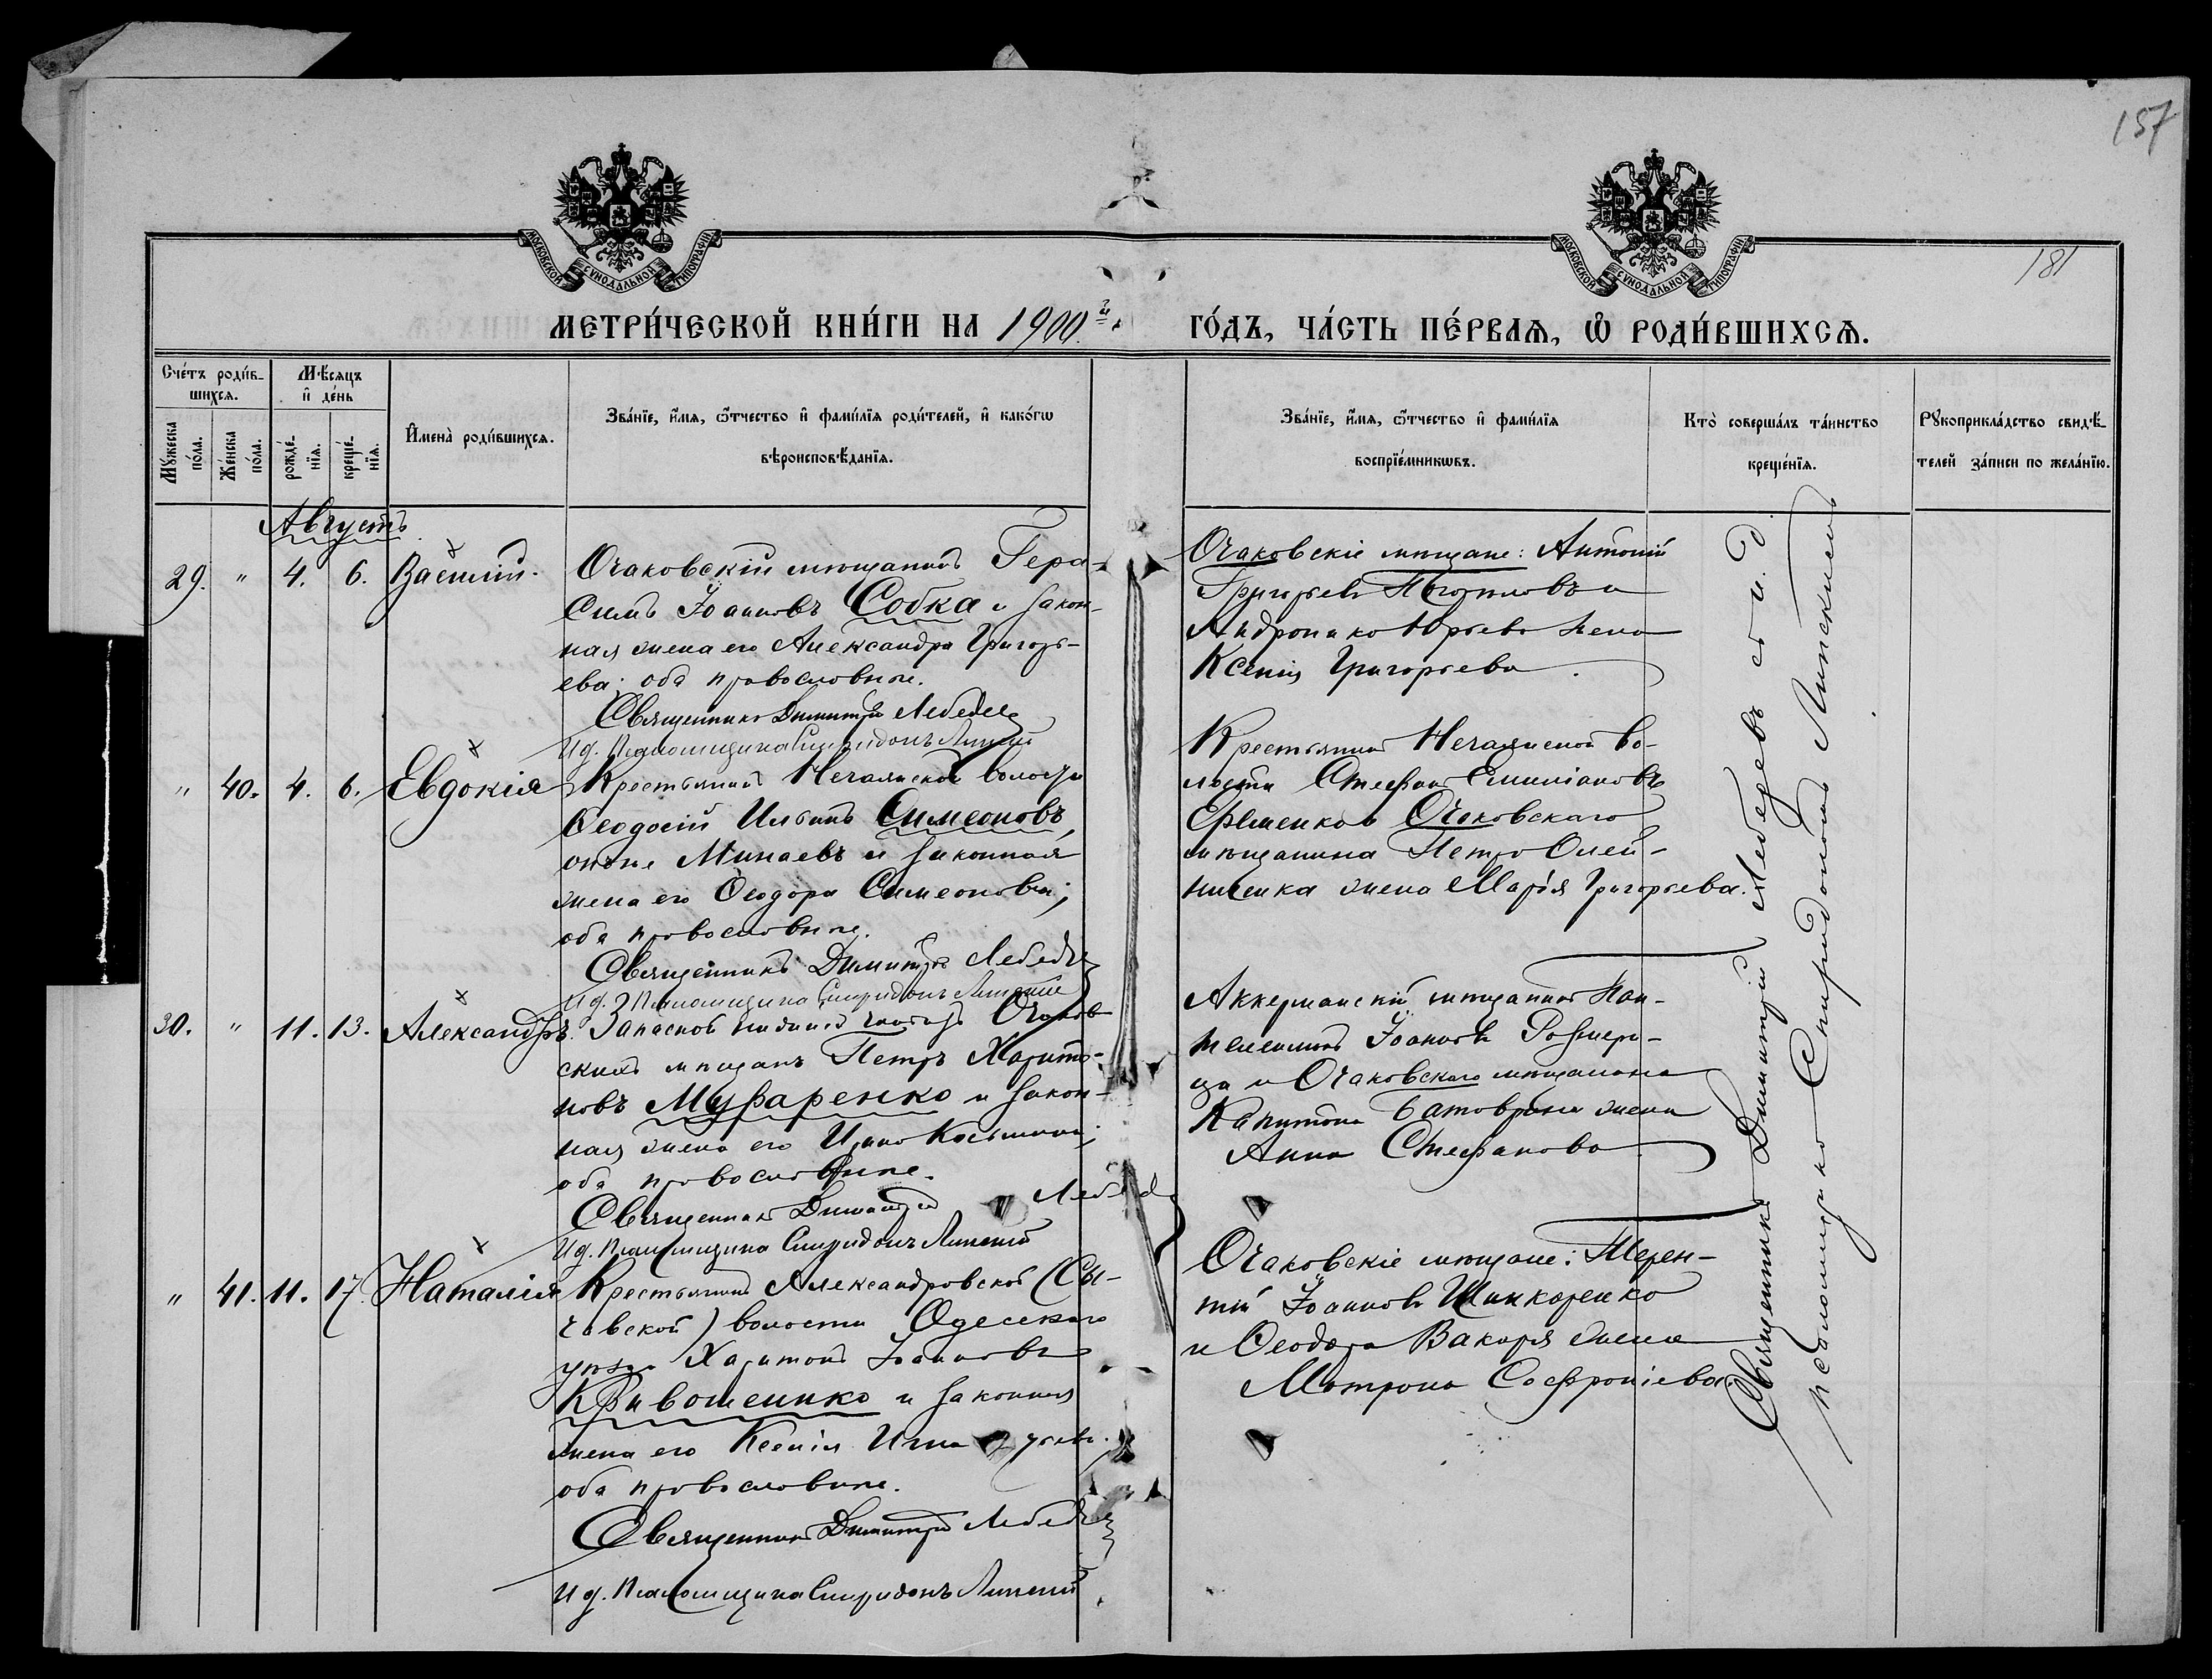 157
181
МОСКОВСКОЙ СѴНОДАЛЬНОЙ ТИПОГРАФІИ
МОСКОВСКОЙ СѴНОДАЛЬНОЙ ТИПОГРАФІИ
МЕТРИ́ЧЕСКОЙ КНИ́ГИ НА 1900й
ГО́ДЪ, ЧА́СТЬ ПЕ́РВАѦ, Ѡ РОДИ́ВШИХСѦ.
Сче́тъ роди́в-
шихсѧ.
Мꙋ́жеска по́ла.
Же́нска по́ла.
Мѣ́сѧцъ и де́нь
рожде́-нїѧ.
креще́-нїѧ.
Имена̀ роди́вшихсѧ.
Зва́нїе, и́мѧ, ѻ́тчество и фами́лїѧ роди́телей, и како́гѡ
вѣроисповѣ́данїѧ.
Зва́нїе, и́мѧ, ѻ́тчество и фами́лїѧ
воспрїе́мникѡвъ.
Кто̀ соверша́лъ та́инство
креще́нїѧ.
Рꙋкоприкла́дство свидѣ́-
телей за́писи по жела́нїю.
Августъ
29. " 4. 6. Василій.
Очаковскій мѣщанинъ Гера-
симъ Іоанновъ Собка и закон-
ная жена его Александра Григорь-
ева; оба православные.
Священникъ Димитрій Лебедевъ
И д. Псаломщика Спиридонъ Липскій
Очаковскіе мѣщане: Антоній
Григорьевъ и
Андроника Юрьева жена
Ксенія Григорьева.
" 40. 4. 6. Евдокія
Крестьянинъ Нечаянской волости
Ѳеодосій Ильинъ Симеоновъ,
онъже Минаевъ и законная
жена его Ѳеодора Симеонова;
оба православные.
Священникъ Димитрій Лебедевъ
И д. Псаломщика Спиридонъ Липскій
Крестьянинъ Нечаянской во-
лости Стефанъ Емиліановъ
Ефименко и Очаковскаго
мѣщанина Петра Олей-
ниченка жена Марія Григорьева.
30. " 11. 13. Александръ.
Запасной рядовой изъ Очаков-
скихъ мѣщанъ Петръ Харито-
новъ Музаренко и закон-
ная жена его Ирина Косьмина;
оба православные.
Священникъ Димитрій Лебедевъ
И д. Псаломщика Спиридонъ Липскій
Аккерманскій мѣщанинъ Пан-
телеимонъ Іоанновъ
и Очаковскаго мѣщанина
Капитона жена
Анна Стефанова
" 41. 11. 17. Наталія
Крестьянинъ Александровской (Сы-
чавской) волости Одесскаго
уѣзда Харитонъ Іоанновъ
Кривошеинко и законная
жена его Ксенія
оба православные.
Священникъ Димитрій Лебедевъ
И д. Псаломщика Спиридонъ Липскій
Очаковскіе мѣщане: Терен-
тій Іоанновъ Шинкаренко
и Ѳеодора Вакаря жена
Матрона Софроніева.
Священникъ Димитрій Лебедевъ съ и. д.
псаломщика Спиридономъ Липскимъ